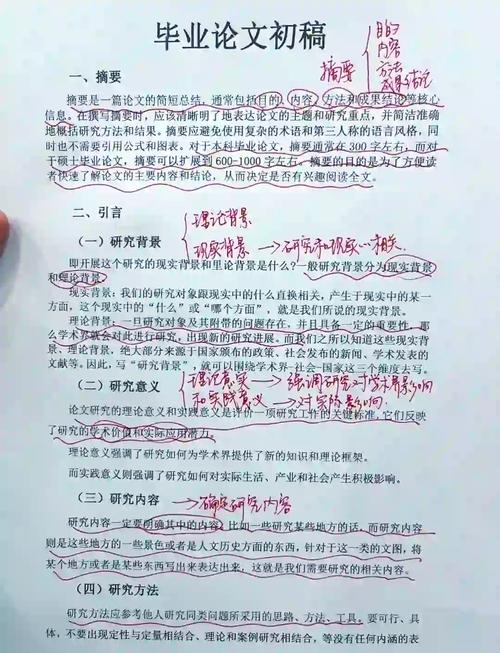 毕业论文初稿
摘要
目的
内容
方法
成果结论
一、摘要
摘要是一篇论文的简短总结，通常包括目的、内容、方法和成果结论等核心
信息。在撰写摘要时，应该清晰明了地表达论文的主题和研究重点，并简洁准确
地概括研究方法和结果。摘要应避免使用复杂的术语和第三人称的语言风格，同
时也不需要引用公式和图表。对于本科毕业论文，摘要通常在 300 字左右，而对
于硕士毕业论文，摘要可以扩展到 600-1000 字左右。摘要的目的是为了方便读
者快速了解论文的主要内容和结论，从而决定是否有兴趣阅读全文。
二、引言
理论背景
（一）研究背景
现实背景 → 研究和现实心相关
即开展这个研究的现实背景和里论背景是什么？一般研究背景分为现实背景
和理论背景。
现实背景：我们的研究对象跟现实中的什么直接相关，产生于现实中的某一
方面，这个现实中的“什么”或“哪个方面”，就是我们所说的现实背景。
理论背景：一旦研究对象及其附带的问题存在，并且具备一定的重要性，那
么学术界就会对此进行研究，出现新的研究进展。而我们之所以知道这些现实背
景、理论背景，绝大部分来源于国家颁布的政策、社会发布的新闻、学术发表的
文献等。因此，写“研究背景”，就可以围绕学术界-社会-国家这三个维度去写。
（二）研究意义
理论意义 → 强调研究对学术界影响
和实践意义 → 对实际影响
论文研究的理论意义和实践意义是评价一项研究工作的关键标准，它们反映
了研究的学术价值和实际应用潜力。
理论意义强调了研究如何为学术界提供了新的知识和理论框架。
而实践意义则强调了研究如何对实际生活、产业和社会产生积极影响。
（三）研究内容 → 确定研究内容
研究内容一定要明确其中的内容，比如一些研究某些地方的话，而研究内容
则是这些地方的一些景色或者是人文历史方面的东西，针对于这一类的文图，将
某个地方或者是某些东西写出来表达出来，这就是我们需要研究的相关内容。
（四）研究方法
研究方法应参考他人研究同类问题所采用的思路、方法、工具。要可行、具
体，不要出现定性与定量相结合、理论和案例研究相结合，等没有任何内涵的表